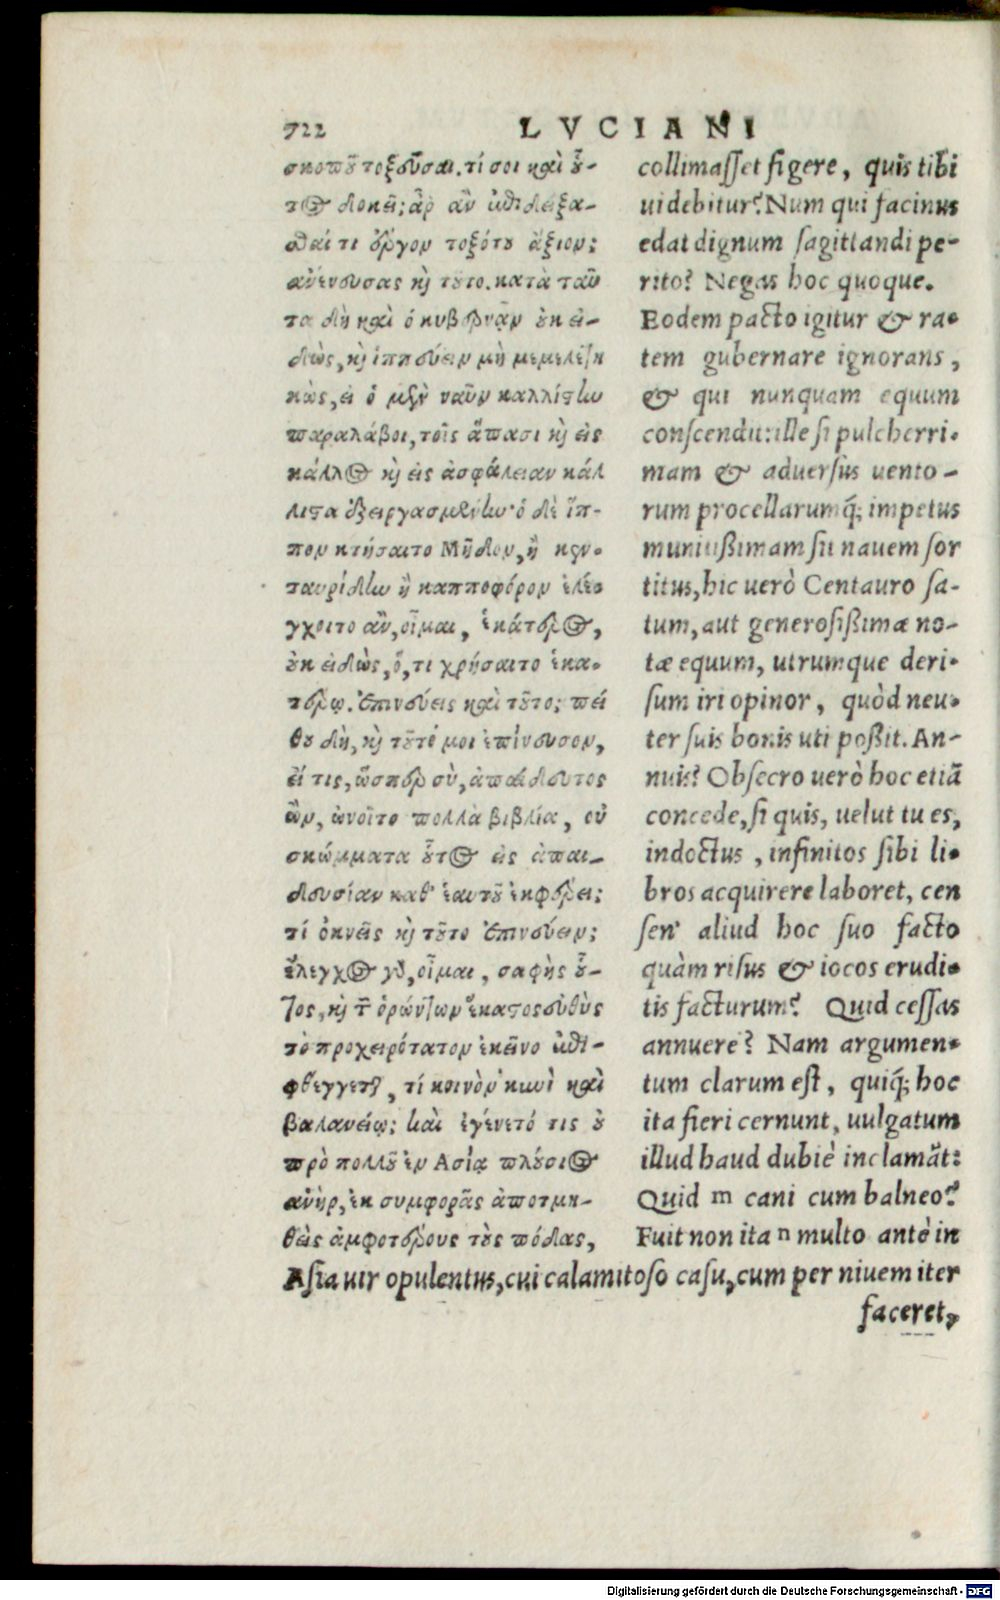 722
LVCIANI
σκοποῦ τοξεῦσαι. τί σοι καὶ οὗ-
τος δοκεῖ; ἆρ' ἂν ἐπιδείξα-
σθαί τι ἔργον τοξότου ἄξιον;
ἀνένευσας καὶ τοῦτο. κατὰ ταῦ
τα δὴ καὶ ὁ κυβερνᾷν οὐκ εἰ-
δὼς, καὶ ἱππεύειν μὴ μεμελετη
κὼς, εἰ ὁ μὲν ναῦν καλλίστην
παραλάβοι, τοῖς ἅπασι καὶ εἰς
κάλλος καὶ εἰς ἀσφάλειαν κάλ
λιστα ἐξειργασμένην· ὁ δὲ ἵπ-
πον κτήσαιτο Μῆδον, ἢ κεν-
ταυρίδην ἢ καπποφόρον ἐλέ-
γχοιτο ἂν, οἶμαι, ἑκάτερος,
οὐκ εἰδὼς, ὅ, τι χρήσαιτο ἑκα-
τέρῳ. ἐπινεύεις καὶ τοῦτο; πεί
θου δὴ, καὶ τοῦτό μοι ἐπίνευσον,
εἴ τις, ὥσπερ σὺ, ἀπαίδευτος
ὢν, ὠνοῖτο πολλὰ βιβλία, οὐ
σκώμματα οὗτος εἰς ἀπαι-
δευσίαν καθ' ἑαυτοῦ ἐκφέρει;
τί ὀκνεῖς καὶ τοῦτο ἐπινεύειν;
ἔλεγχος γὸ, οἶμαι, σαφὴς οὗ-
τος, καὶ τ ὁρώντων ἕκαστος εὐθὺς
τὸ προχειρότατον ἐκεῖνο ἐπι-
φθέγγεται, τί κοινὸν κυνὶ καὶ
βαλανείῳ; καὶ ἐγένετό τις οὐ
πρὸ πολλοῦ ἐν Ασίᾳ πλούσιος
ἀνὴρ, ἐκ συμφορᾶς ἀποτμη-
θεὶς ἀμφοτέρους τοὺς πόδας,
collimasset figere, quis tibi
uidebitur? Num qui facinus
edat dignum sagittandi pe-
rito? Negas hoc quoque.
Eodem pacto igitur & ra-
tem gubernare ignorans,
& qui nunquam equum
conscendit: ille si pulcherri-
mam & aduersus uento-
rum procellarumq; impetus
munitißimam sit nauem sor
titus, hic uerò Centauro sa-
tum, aut generosißimæ no-
tæ equum, utrumque deri-
sum iri opinor, quòd neu-
ter suis bonis uti poßit. An-
nuis? Obsecro uerò hoc etiã
concede, si quis, uelut tu es,
indoctus, infinitos sibi li-
bros acquirere laboret, cen
sen' aliud hoc suo facto
quàm risus & iocos erudi-
tis facturum? Quid cessas
annuere? Nam argumen-
tum clarum est, quiq; hoc
ita fieri cernunt, uulgatum
illud haud dubiè inclamãt:
Quid m cani cum balneo?
Fuit non ita n multo antè in
Asia uir opulentus, cui calamitoso casu, cum per niuem iter
faceret,
Digitalisierung gefördert durch die Deutsche Forschungsgemeinschaft - DFG